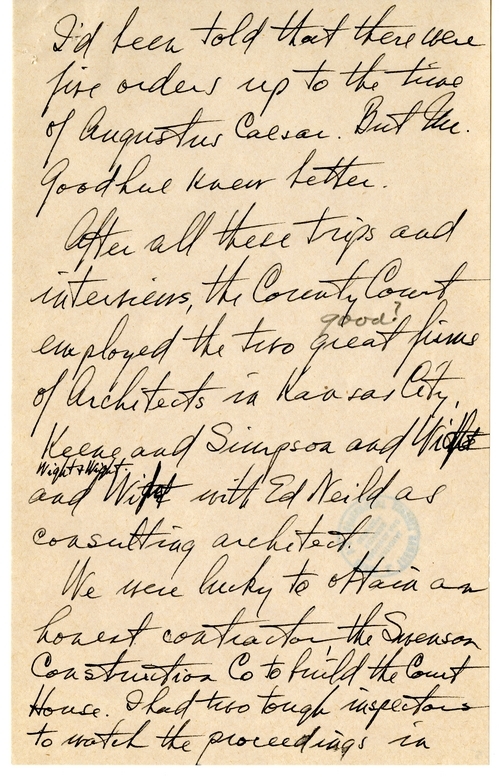 I'd been told that there were
five orders up to the time
of Augustus Caesar. But Mr.
Goodhue knew better.
After all these trips and
interviews, the County Court
good?
employed the two great firms
of Architects in Kansas City,
Keene and Simpson and Wight
Wight & Wight
and Wight with Ed Neild as
consulting architect.
We were lucky to obtain an
honest contractor, the Swenson
Construction Co to build the Court
House. I had two tough inspectors
to watch the proceedings in